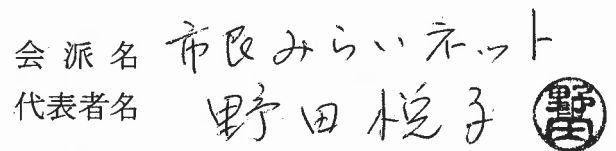 会派名 市民みらいネット
代表者名 野田悦子 野田